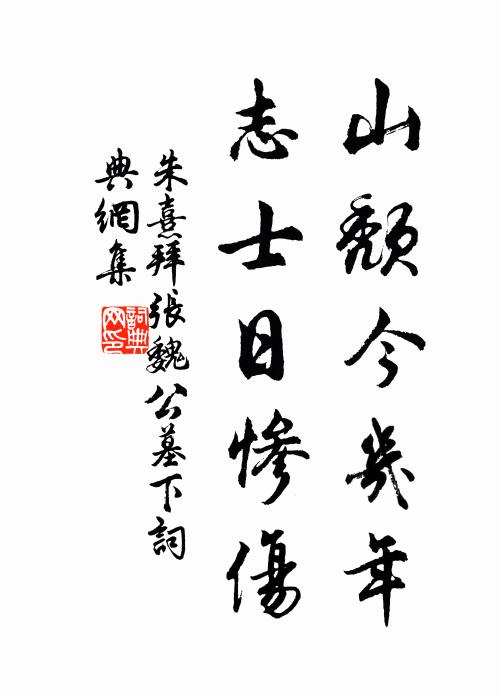 山頹今幾年
志士日慘傷
朱熹拜張魏公墓下詞
典網集
詞典网印